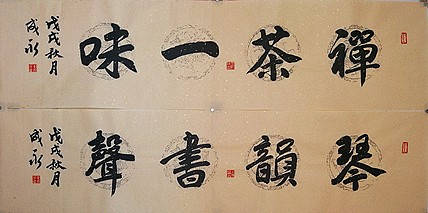 禪茶一味
戊戌秋月
成永
琴韻書聲
戊戌秋月
成永